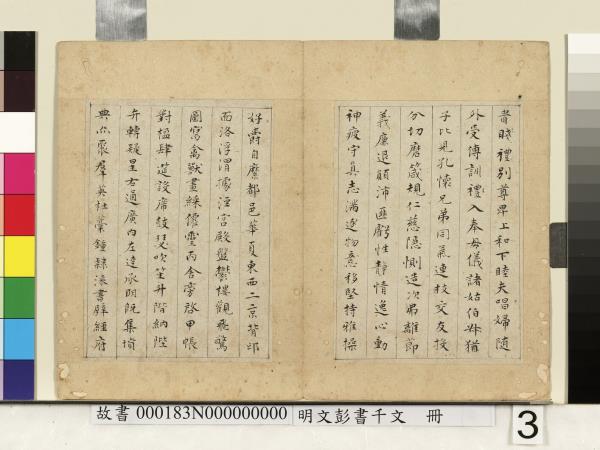 貴賤禮別尊卑上和下睦夫唱婦隨
外受傅訓禮入奉母儀諸姑伯叔猶
子比兒孔懷兄弟同氣連枝交友投
分切磨箴規仁慈隱惻造次弗離節
義廉退顛沛匪虧性靜情逸心動
神疲守真志滿逐物意移堅持雅操
好爵自縻都邑華夏東西二京背邙
面洛浮渭據涇宮殿盤鬱樓觀飛驚
圖寫禽獸畫綵僊靈丙舍旁啓甲帳
對楹肆筵設席鼓瑟吹笙升階納陛
弁轉疑星右通廣內左達承明既集墳
典亦聚羣英杜稾鍾隸漆書壁經府
故書 000183N000000000 明文彭書千文 冊
3